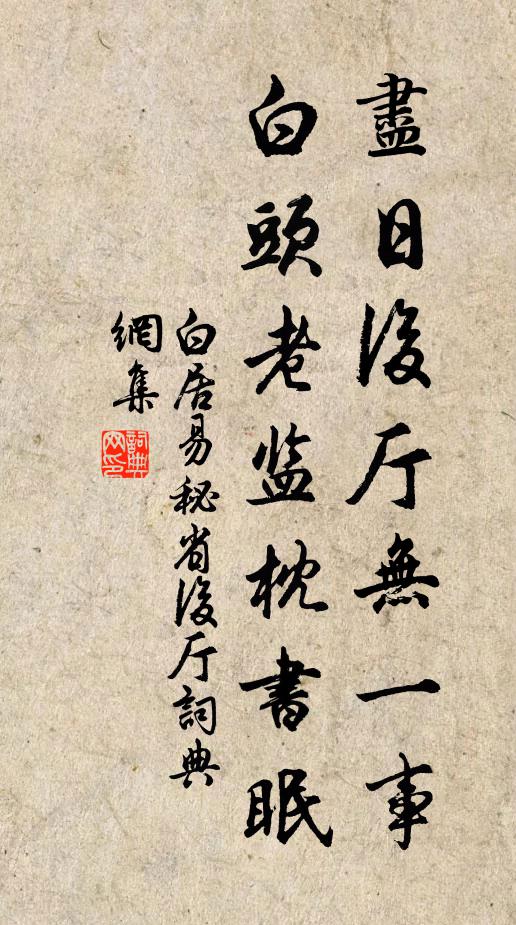 盡日後厅無一事
白頭老监枕書眠
白居易秘省後厅詞典
網集
詞典网印